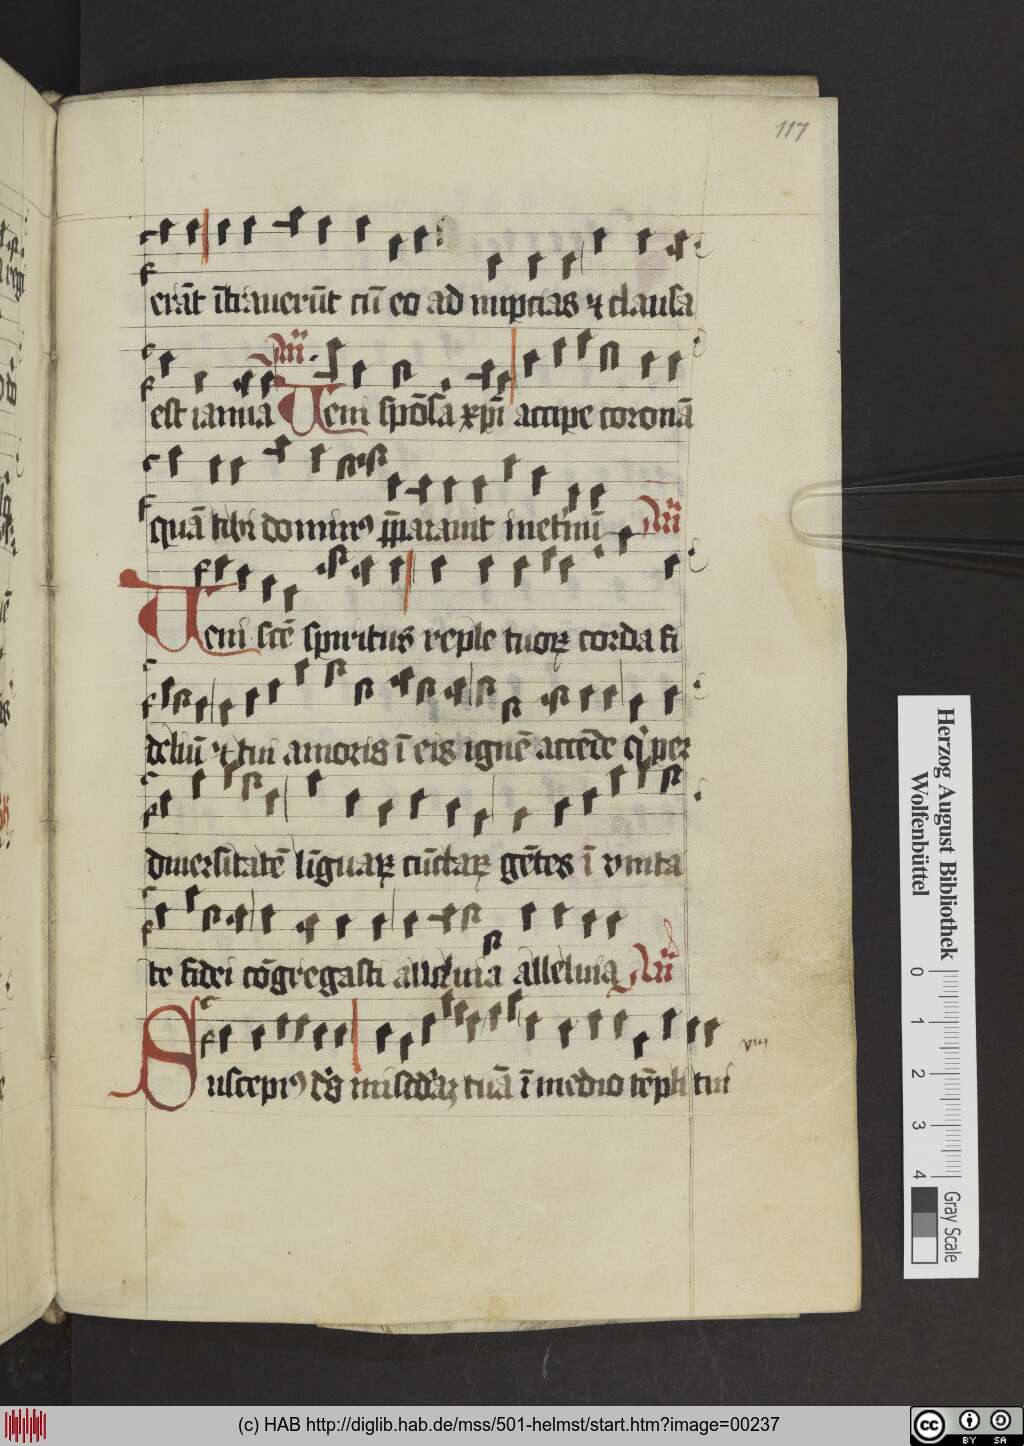 117
erāt ītrauerūt cū eo ad nupcias ⁊ clausa
est ianua Ań. Ueni spōsa xp̄i accipe coronā
quā tibi dominꝰ p̄parauit inet̄nū Ań
Ueni scē spiritus reple tuoꝝ corda fi
deliū ⁊ tui amoris ī eis ignē accēde q̇ per
diuersitatē līguaꝝ cūctaꝝ gētes ī vnita
te fidei cōgregasti alleluia alleluia Ań
Suscepimꝰ tuā ī medio tēpli tui
viij
Herzog August Bibliothek
Wolfenbüttel
0 1 2 3 4
Gray Scale
(c) HAB http://diglib.hab.de/mss/501-helmst/start.htm?image=00237
cc BY SA